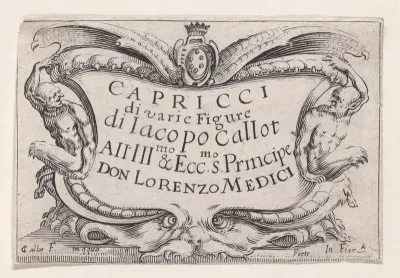 CAPRICCI
di varie Figure
di Iacopo Callot
All Ill mo & Ecc. mo S. Principe
DON LORENZO MEDICI
Callot F.
In Fior.